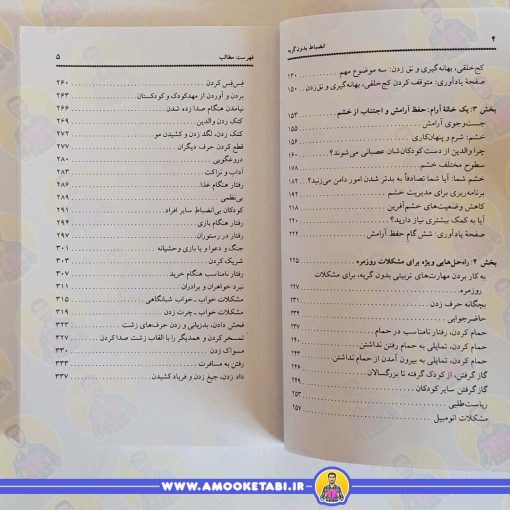 ۴ انضباط بدون‌گریه
کج‌خلقی، بهانه‌گیری و نق زدن: سه موضوع مهم ۱۳۰
صفحهٔ یادآوری: متوقف کردن کج‌خلقی، بهانه‌گیری و نق زدن ۱۵۰
بخش ۳: یک خانهٔ آرام: حفظ آرامش و اجتناب از خشم ۱۵۳
جست‌وجوی آرامش ۱۵۵
خشم، شرم و پنهان‌کاری
چرا والدین از دست کودکان‌شان عصبانی می‌شوند؟ ۱۶۰
سطوح مختلف خشم
خشم شما: آیا شما تصادفاً به بدتر شدن امور دامن می‌زنید؟ ۱۸۲
برنامه‌ریزی برای مدیریت خشم ۱۹۲
کاهش وضعیت‌های خشم‌آفرین
آیا به کمک بیشتری نیاز دارید؟ ۲۲۰
صفحهٔ یادآوری: شش گامِ حفظ آرامش ۲۲۲
بخش ۴: راه‌حل‌هایی ویژه برای مشکلات روزمره ۲۲۵
به کار بردن مهارت‌های تربیتی بدون گریه، برای مشکلات
روزمره
بچگانه حرف زدن
حاضرجوابی ۲۳۷
حمام کردن، رفتار نامناسب در حمام
حمام کردن، تمایلی به حمام رفتن نداشتن
حمام کردن، تمایلی به بیرون آمدن از حمام نداشتن
گاز گرفتن، از کودک گرفته تا بزرگسالان ۲۴۹
گاز گرفتن سایر کودکان ۲۵۳
ریاست‌طلبی
مشکلات اتومبیل ۲۵۷
فهرست مطالب ۵
فس‌فس کردن ۲۶۰
بردن و آوردن از مهدکودک و کودکستان ۲۶۳
نیامدن هنگام صدا زده شدن ۲۶۶
کتک زدن والدین ۲۷۰
کتک زدن، لگد زدن و کشیدن مو ۲۷۲
قطع کردن حرف دیگران ۲۷۷
دروغگویی ۲۸۰
آداب و نزاکت ۲۸۳
رفتار هنگام غذا ۲۸۶
بی‌نظمی ۲۸۹
کودکان بی‌انضباط سایر افراد ۲۹۱
رفتار هنگام بازی ۲۹۴
رفتار در رستوران ۲۹۷
جنگ و دعوا و یا بازی وحشیانه ۳۰۱
شریک کردن ۳۰۳
رفتار نامناسب هنگام خرید ۳۰۷
نبرد خواهران و برادران ۳۱۱
مشکلات خواب ـ خواب شبانگاهی ۳۱۵
مشکلات خواب ـ چرت زدن ۳۱۹
فحش دادن، بدزبانی و زدن حرف‌های زشت ۳۲۳
تمسخر کردن و همدیگر را با القاب زشت صدا کردن ۳۲۷
مسواک زدن ۳۳۰
رفتن به مسافرت ۳۳۳
داد زدن، جیغ زدن و فریاد کشیدن ۳۳۷
WWW.AMOOKETABI.IR